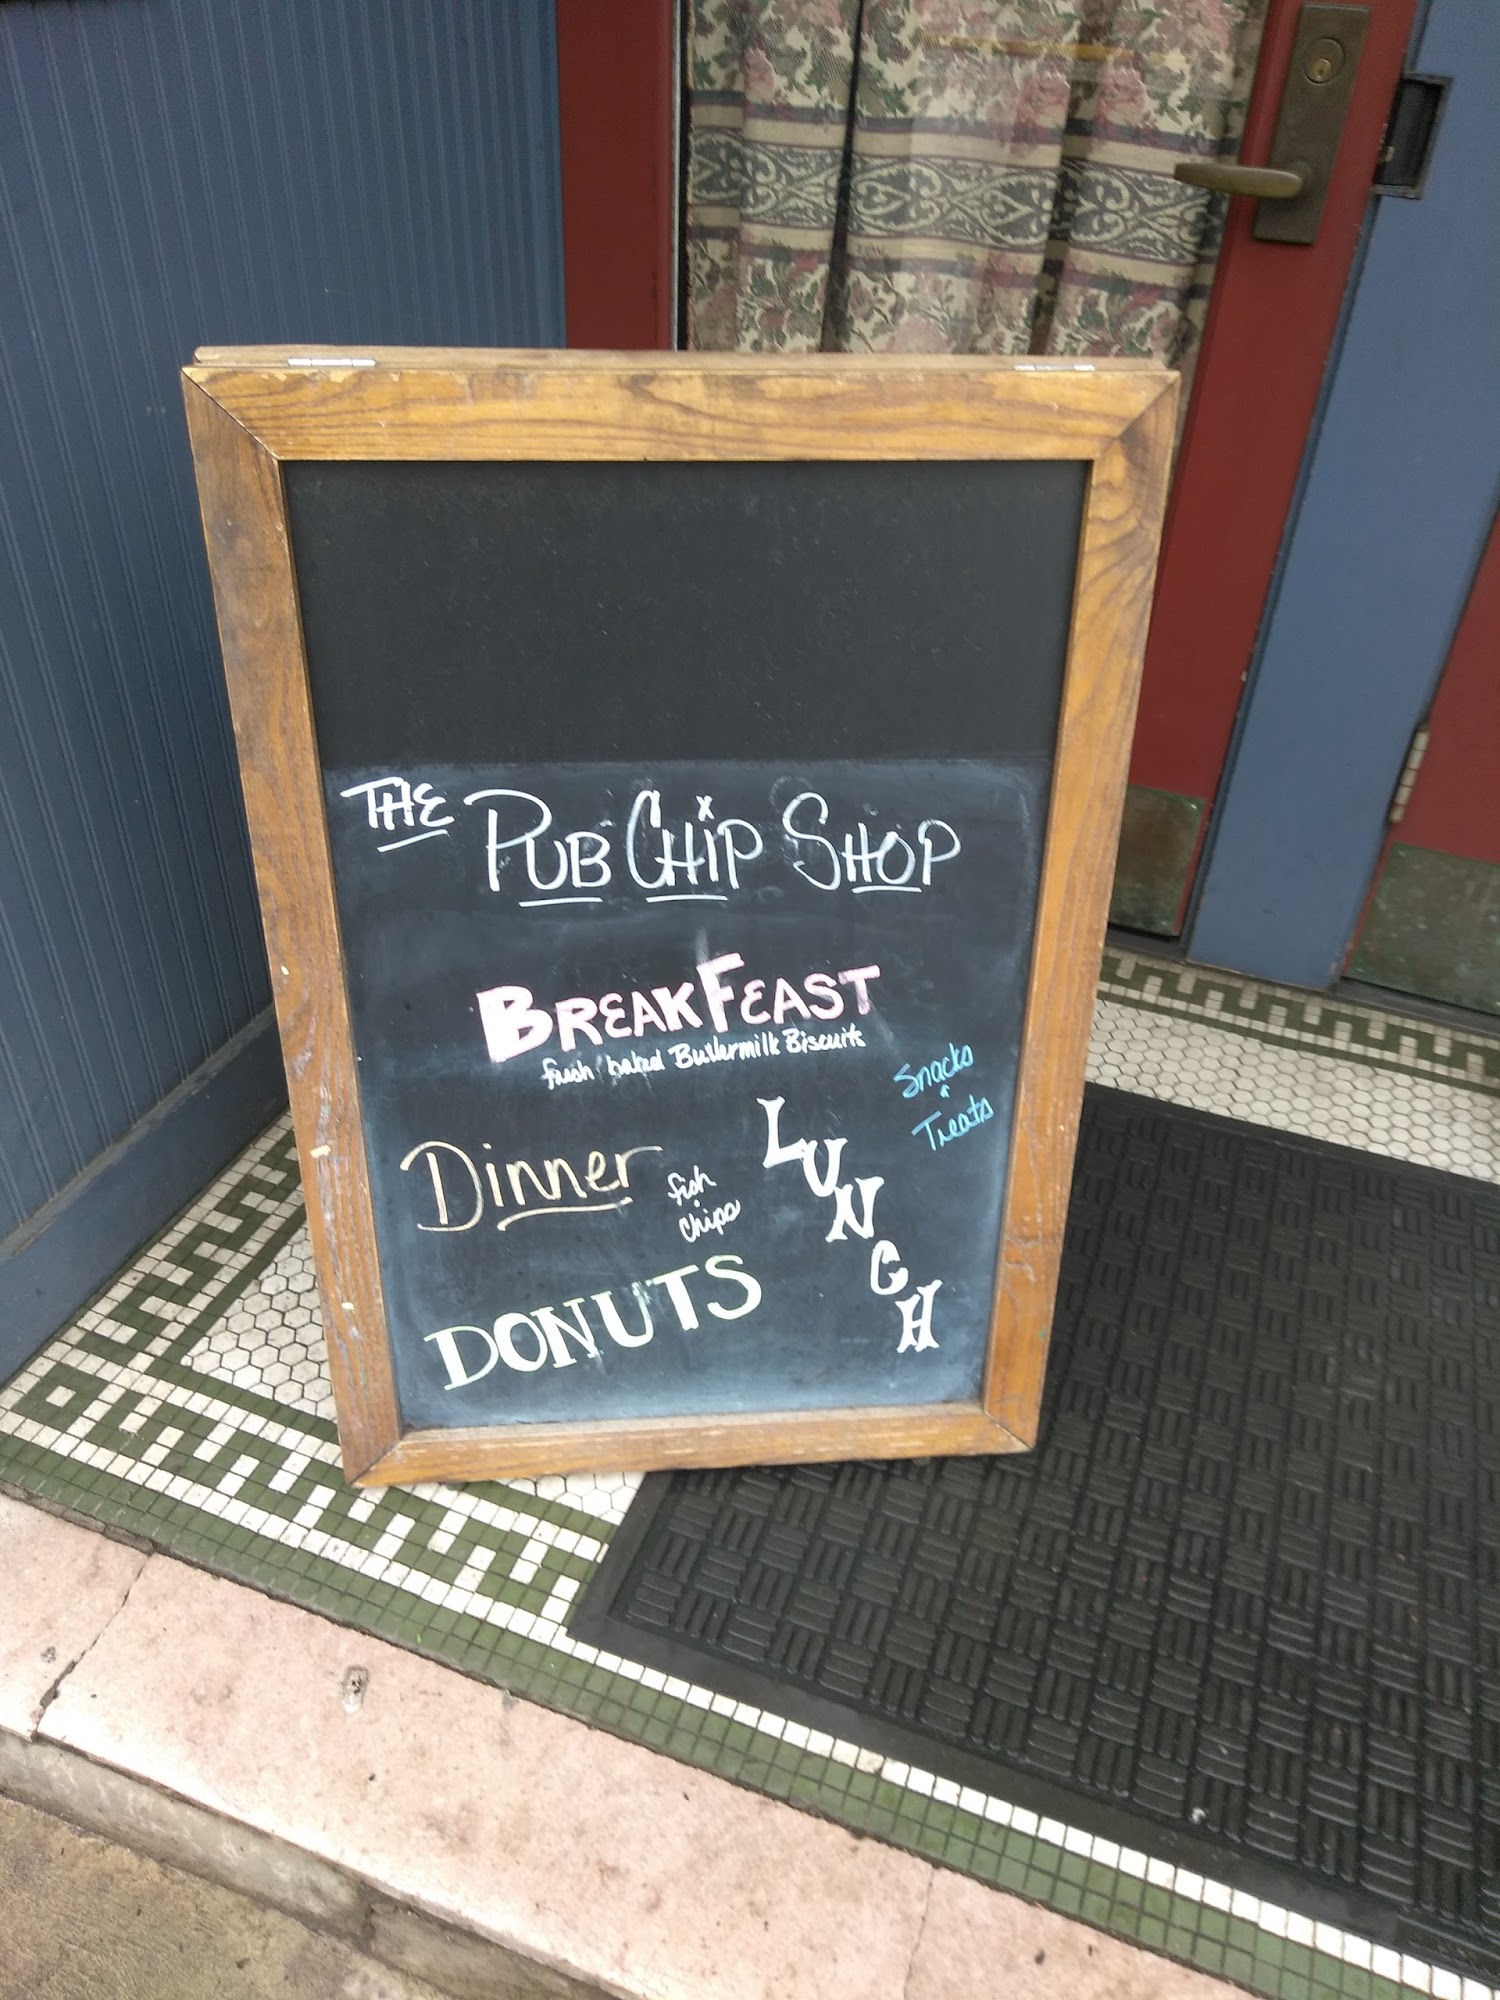 THE PUB CHIP SHOP
BREAKFEAST
fresh baked Buttermilk Biscuits
Snacks
&
Treats
Dinner
fish
&
chips
LUNCH
DONUTS